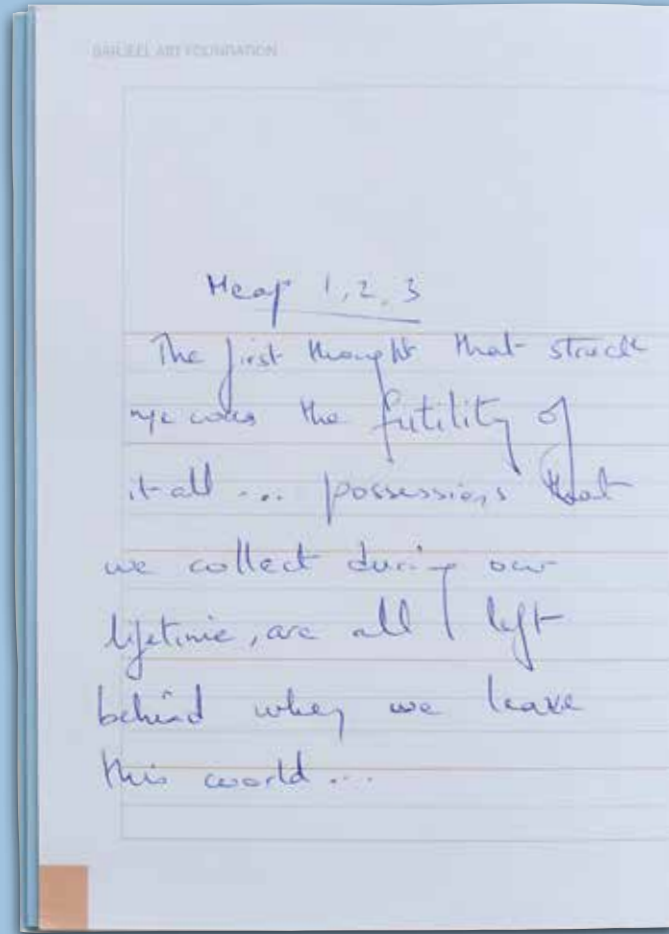 BARJEEL ART FOUNDATION
Heap 1, 2, 3
The first thought that struck
me was the futility of
it all ... possessions that
we collect during our
lifetime, are all left
behind when we leave
this world ...